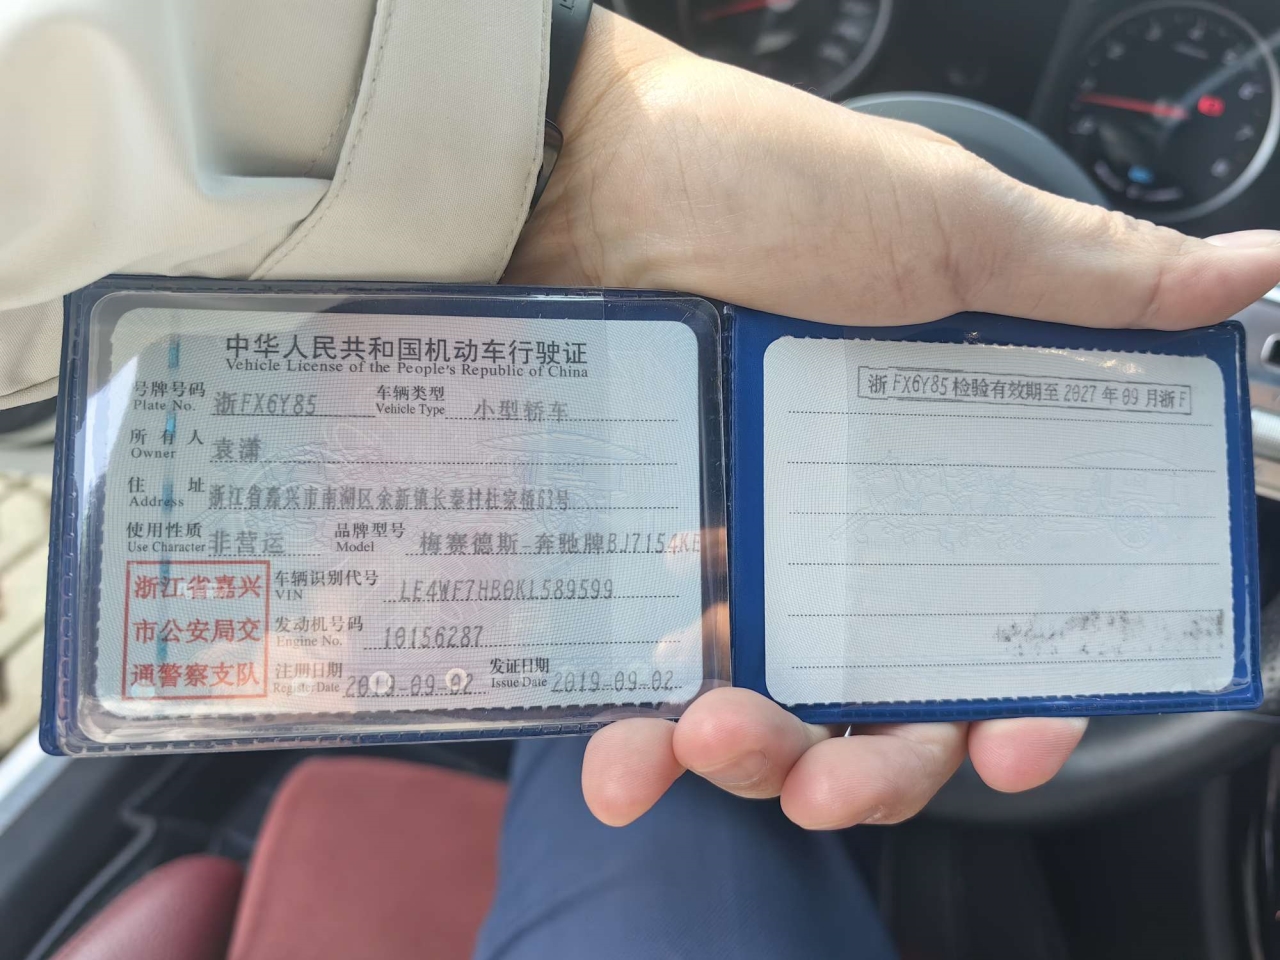 中华人民共和国机动车行驶证
Vehicle License of the People's Republic of China
号牌号码 浙FX6Y85 车辆类型 小型轿车
Plate No. Vehicle Type
所有人 袁潇
Owner
住址 浙江省嘉兴市南湖区余新镇长秦村杜家桥63号
Address
使用性质 非营运 品牌型号 梅赛德斯-奔驰牌BJ7154KE
Use Character Model
浙江省嘉兴
市公安局交
通警察支队
车辆识别代号 LE4WF7HB0KL589599
VIN
发动机号码 10156287
Engine No.
注册日期 2019-09-02 发证日期 2019-09-02
Register Date Issue Date
浙FX6Y85检验有效期至2027年09月浙F